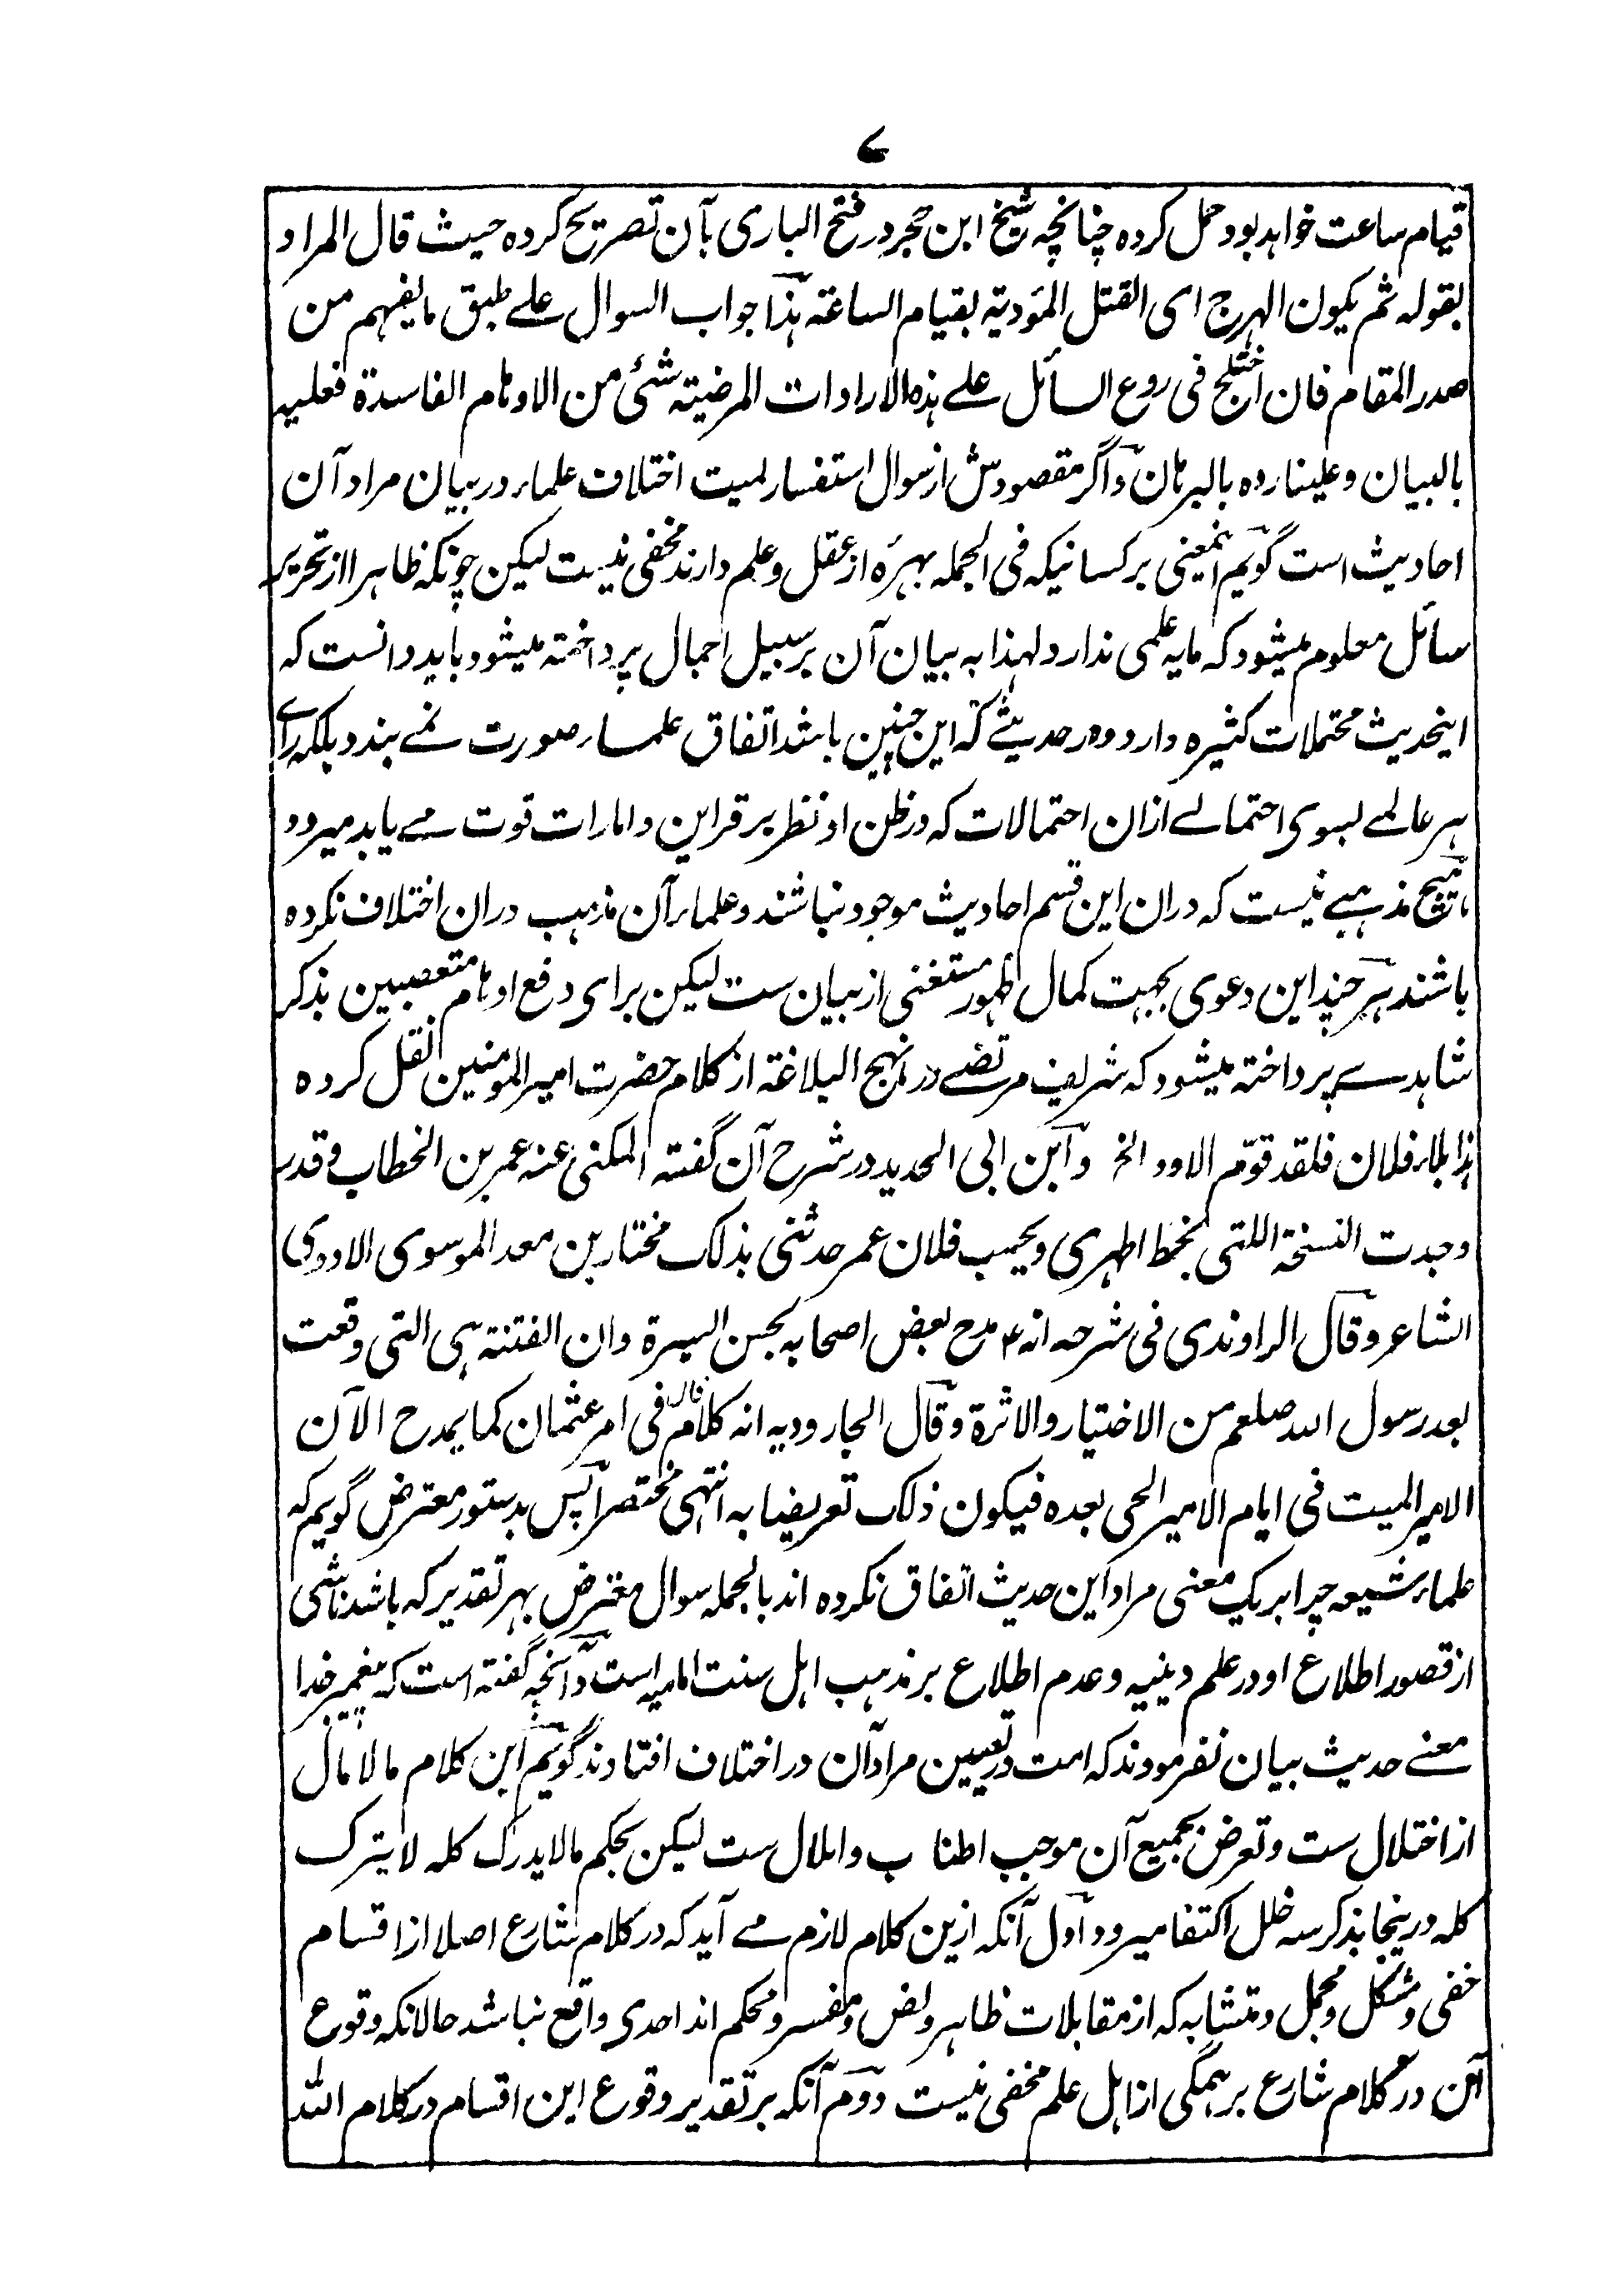 ۷
قیام ساعت خواہد بود حمل کردہ چنانچہ شیخ ابن حجر در فتح الباری بآن تصریح کردہ حیث قال المراد
بقولہ ثم یکون الہرج ای القتل المودیۃ بقیام الساعۃ ہذا جواب السوال علے طبق ما یفہم من
صدر المقام فان اختلج فی روع السائل علے ہذہ الارادات المرضیۃ شئ من الاوہام الفاسدۃ فعلیہ
بالبیان وعلینا ردہ بالبرہان و اگر مقصودش از سوال استفسار لمیت اختلاف علماء در بیان مراد آن
احادیث است گویم اینمعنی بر کسانیکہ فی الجملہ بہرۂ از عقل و علم دارند مخفی نیست لیکن چونکہ ظاہرا از تحریر
سائل معلوم میشود کہ مایہ علمی ندارد لہذا بہ بیان آن بر سبیل اجمال پرداختہ میشود باید دانست کہ
اینحدیث محتملات کثیرہ دارد و در حدیثے کہ این چنین باشد اتفاق علماء صورت نمے بندد بلکہ راے
ہر عالمے بسوی احتمالے ازان احتمالات کہ در ظن او نظر بر قراین و امارات قوت مے یابد میرود
ہیچ مذہبے نیست کہ دران این قسم احادیث موجود نباشند و علماء آن مذہب دران اختلاف نکردہ
باشند ہر چند این دعوی بجہت کمال ظہور مستغنی از بیان ست لیکن برای دفع اوہام متعصبین بذکر
شاہدے پرداختہ میشود کہ شریف مرتضے در نہج البلاغۃ از کلام حضرت امیر المومنین نقل کردہ
للہ بلاء فلان فلقد قوّم الاود الخ و ابن ابی الحدید در شرح آن گفتہ المکنی عنہ عمر بن الخطاب وقد
وجدت النسخۃ اللتی بخط اطہری و بجیب فلان عمر حدثنی بذلک مختار بن معد الموسوی الاودی
الشاعر وقال الراوندی فی شرحہ انہ ع مدح بعض اصحابہ بحسن السیرۃ وان الفتنۃ ہی التی وقعت
بعد رسول اللہ صلعم من الاختیار والاثرۃ وقال الجارودیہ انہ کلام قالہ فی امر عثمان کما یمدح الآن
الامیر المیت فی ایام الامیر الحی بعدہ فیکون ذلک تعریضا بہ انتہی مختصرا پس بدستور معترض گویم کہ
علماء شیعہ چرا بر یک معنی مراد این حدیث اتفاق نکردہ اند بالجملہ سوال معترض بہر تقدیر کہ باشد ناشی
از قصور اطلاع او در علم دینیہ و عدم اطلاع بر مذہب اہل سنت امامیہ است و آنچہ گفتہ است کہ پیغمبر خدا
معنے حدیث بیان نفرمودند کہ امت در تعیین مراد آن در اختلاف افتادند گویم این کلام مالا مال
از اختلال ست و تعرض بجمیع آن موجب اطناب و املال ست لیکن بحکم مالا یدرک کلہ لا یترک
کلہ درینجا بذکر سہ خلل اکتفا میرود اول آنکہ ازین کلام لازم مے آید کہ در کلام شارع اصلا از اقسام
خفی و مشکل و مجمل و متشابہ کہ از مقابلات ظاہر و نص و مفسر و محکم اند احدی واقع نباشد حالانکہ وقوع
آن در کلام شارع بر ہمگی از اہل علم مخفی نیست دوم آنکہ بر تقدیر وقوع این اقسام در کلام اللہ